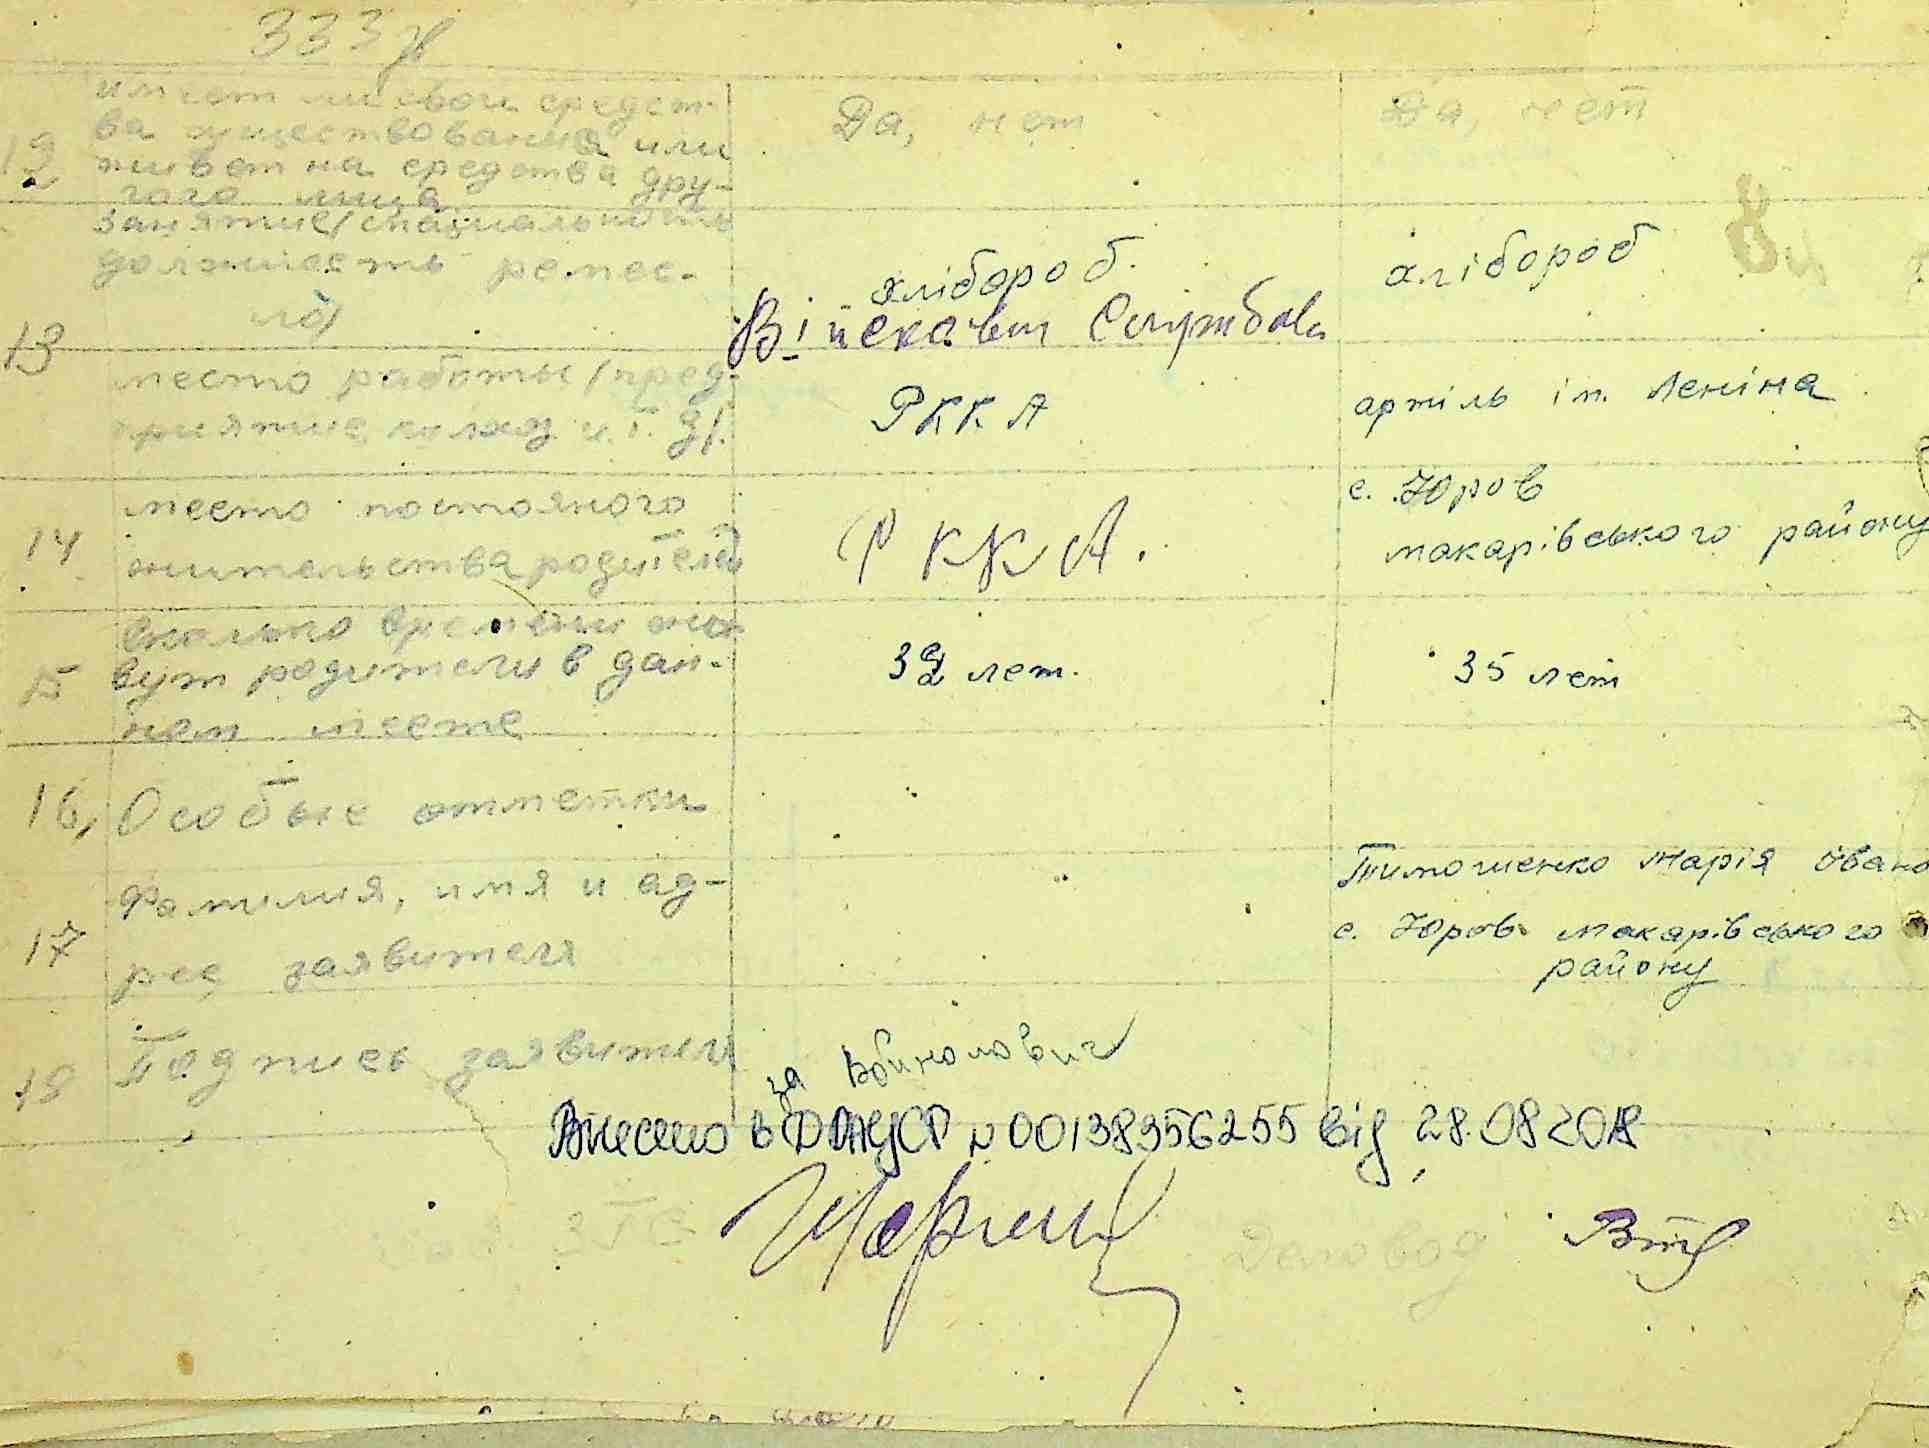 333
12 имеет ли свои средст-
ва существования или
живет на средства дру-
гого лица
Да, нет
Да, нет
13 занятие/специальность
должность ремес-
ло/
хлібороб.
Війскавий Службова
хлібороб
место работы /пред-
приятие, колхоз и т. д/.
РККА
артіль ім. Леніна
14 место постояного
жительства родителей
РККА.
с. Юров
макарівського району
15 Сколько времени жи-
вут родители в дан-
ном месте
32 лет.
35 лет
16, Особые отметки
17 Фамилия, имя и ад-
рес заявителя
Тимошенко Марія Івано
с. Юров макарівського
району
18 Подпись заявителя
за
Внесено в ДРАЦСГ № 00138356255 від 28.08 2018
ЗГС
Деловод